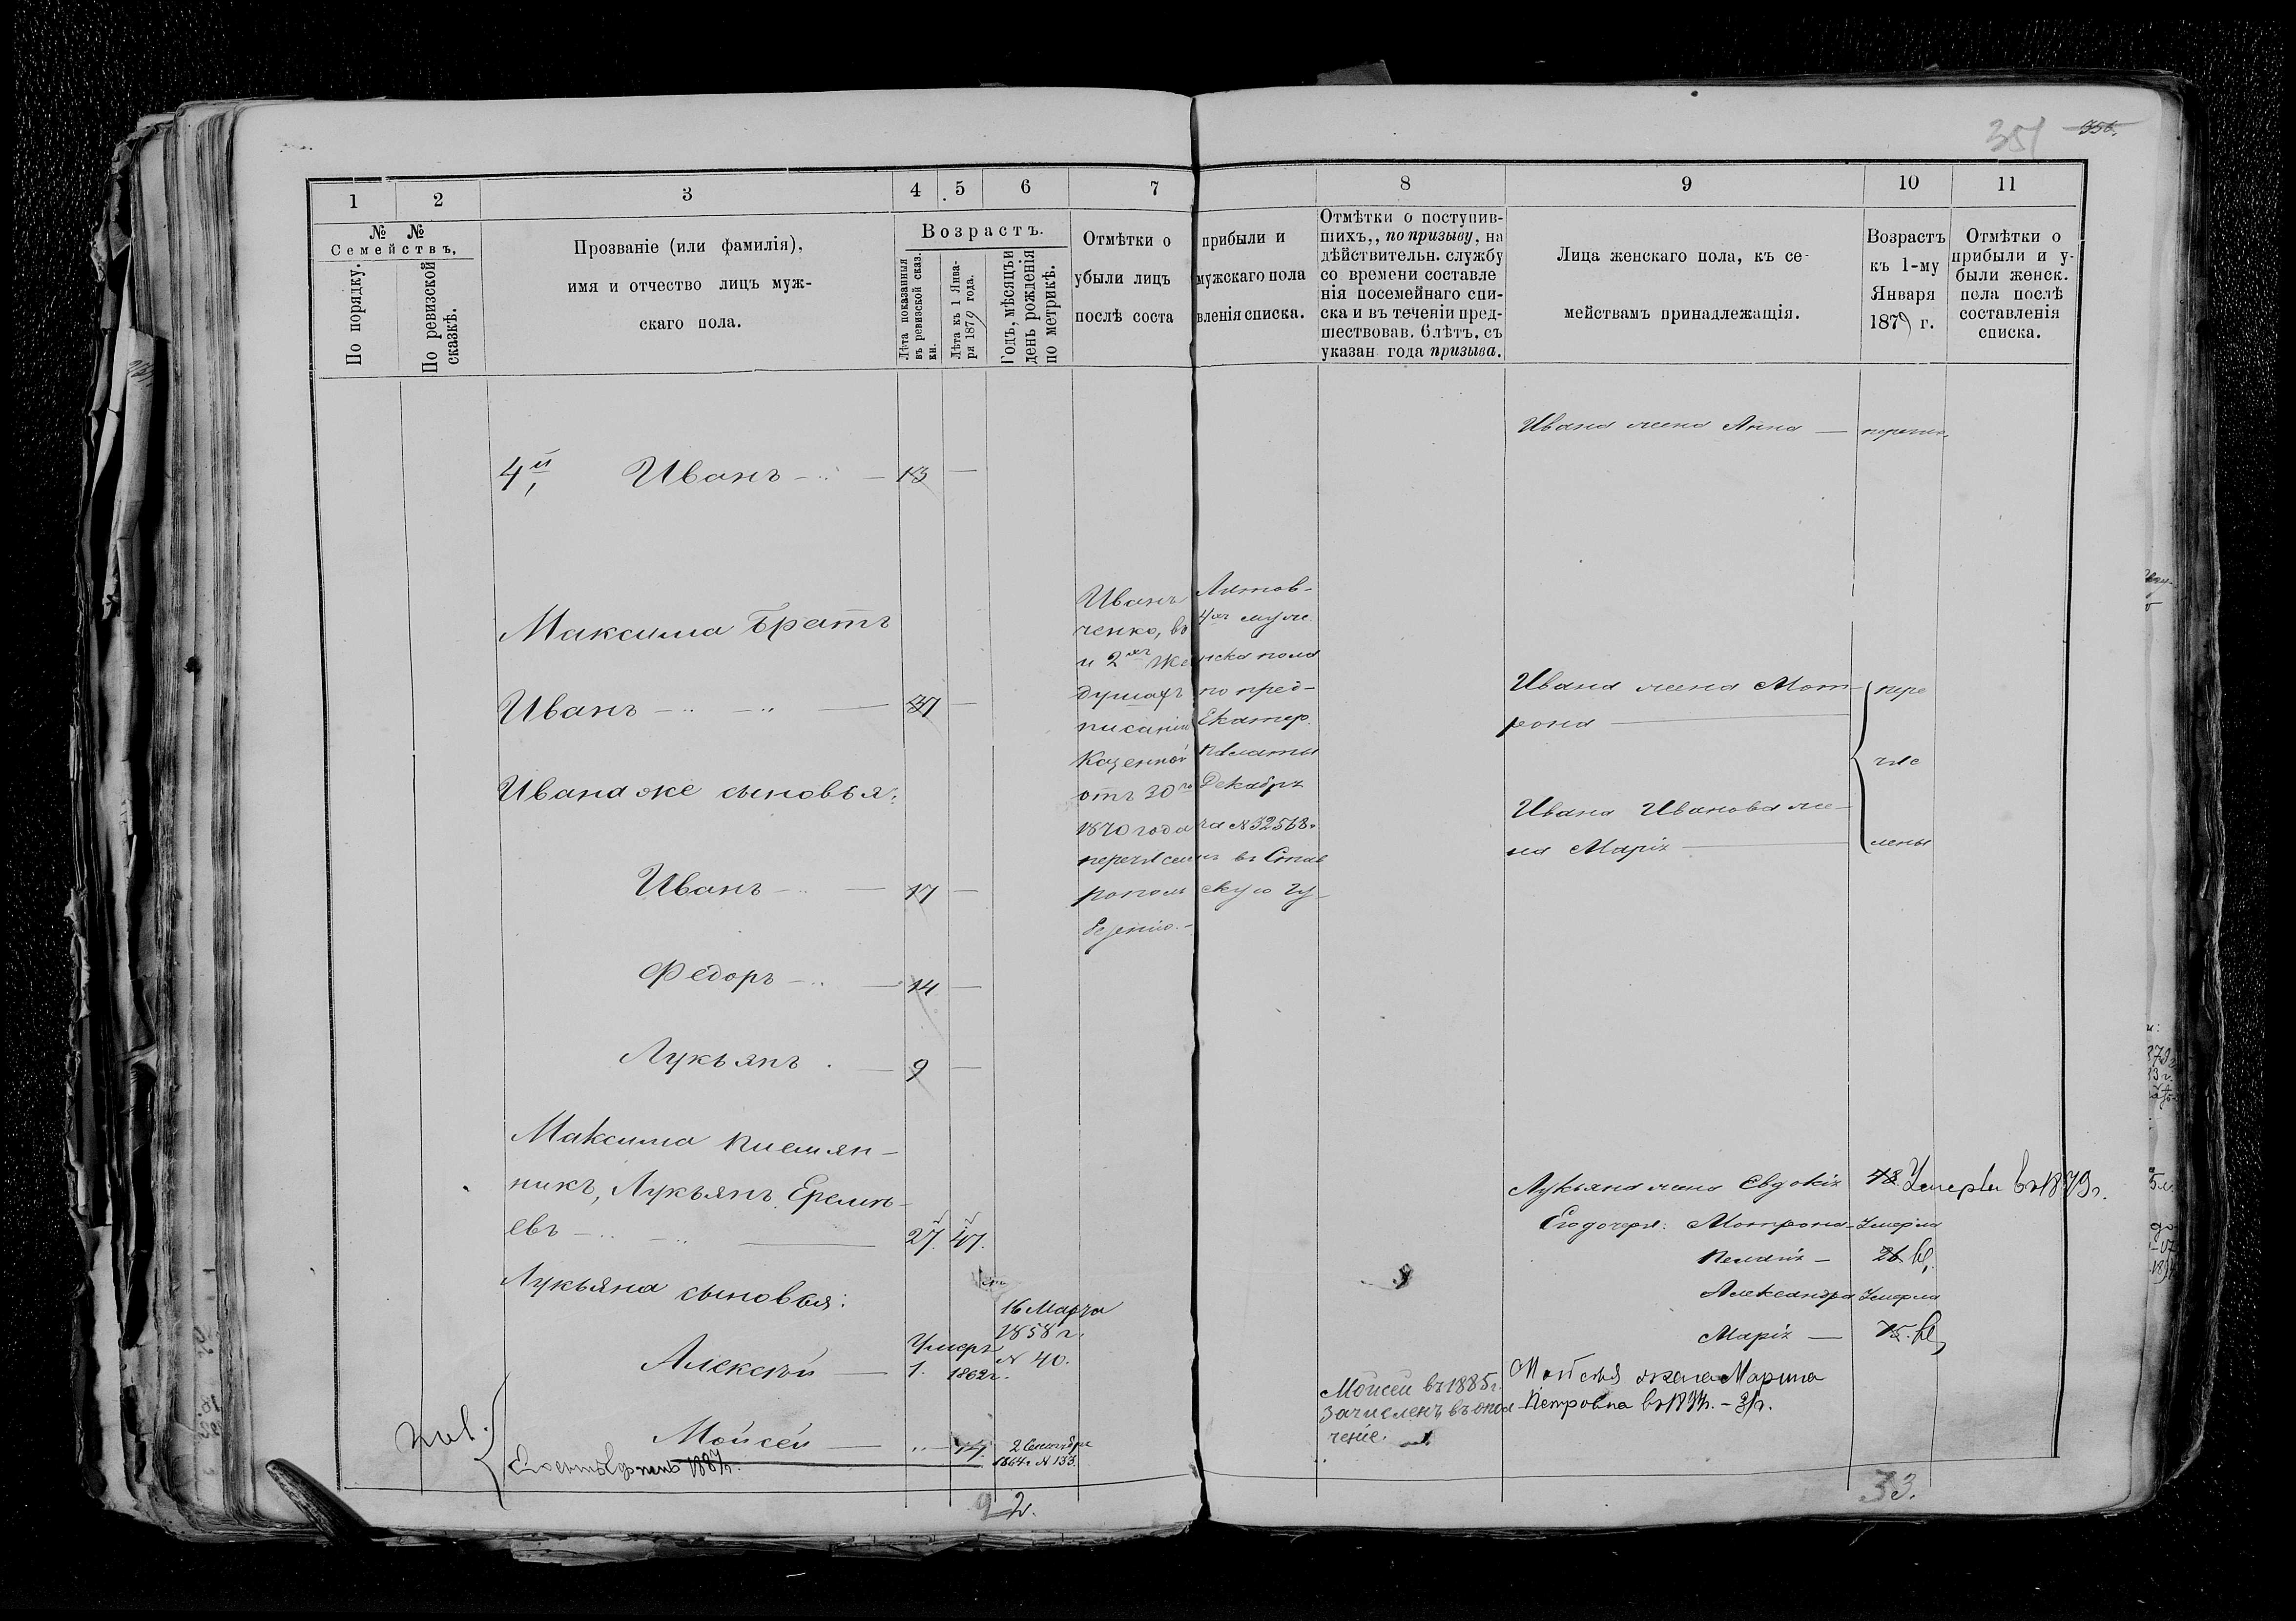 351 356.
1 2 3 4 5 6 7 8 9 10 11
№ №
Семействъ,
По порядку.
По ревизской сказкѣ.
Прозваніе (или фамилія),
имя и отчество лицъ муж-
скаго пола.
Возрастъ.
Лѣта показанныя
въ ревизской сказ.
ки.
Лѣта къ 1 Янва-
ря 1879 года.
Годъ, мѣсяцъ и
день рожденія
по метрикѣ.
Отмѣтки о прибыли и
убыли лицъ мужскаго пола
послѣ соста вленія списка.
Отмѣтки о поступив-
шихъ,, по призыву, на
дѣйствительн. службу
со времени составле
нія посемейнаго спи-
ска и въ теченіи пред-
шествовав. 6 лѣтъ, съ
указан года призыва.
Лица женскаго пола, къ се-
мействамъ принадлежащія.
Возрастъ
къ 1-му
Января
1879 г.
Отмѣтки о
прибыли и у-
были женск.
пола послѣ
составленія
списка.
Ивана жена Анна —
4й, Иванъ — 13 —
Иванъ Литов-
ченко, въ 4хъ муж
и 2хъ женска пола
душахъ по пред-
писанію Екатер.
Казенной Палаты
отъ 30го Декабря
1870 года за № 32568.
перечисленъ въ Став
рополь скую Гу-
бернію. —
Максима Братъ
Иванъ — 37 —
Ивана жена Мот-
рона —
пере
чис
лены
Ивана же сыновья:
Ивана Иванова же-
на Марія —
Иванъ — 17 —
Федоръ — 14 —
Лукьянъ — 9 —
Максима племян-
никъ, Лукьянъ Еремѣ-
евъ — 27. 47.
Лукьяна жена Евдокія 48. Умерла въ 1879 г.
Его дочери: Матрона — Умерла
Пелагія — 26
Александра Умерла
Марія — 15.
Лукьяна сыновья:
Алексѣй — 1. Умеръ 1862 г.
16 Марта
1858 г.
№ 40.
Моисей — 14.
2 Сентября
1864 г. № 133.
1887 г.
Моисей въ 1885 г.
зачисленъ въ опол
ченіе.
Моисея жена Марина
Петровна
2.
33.